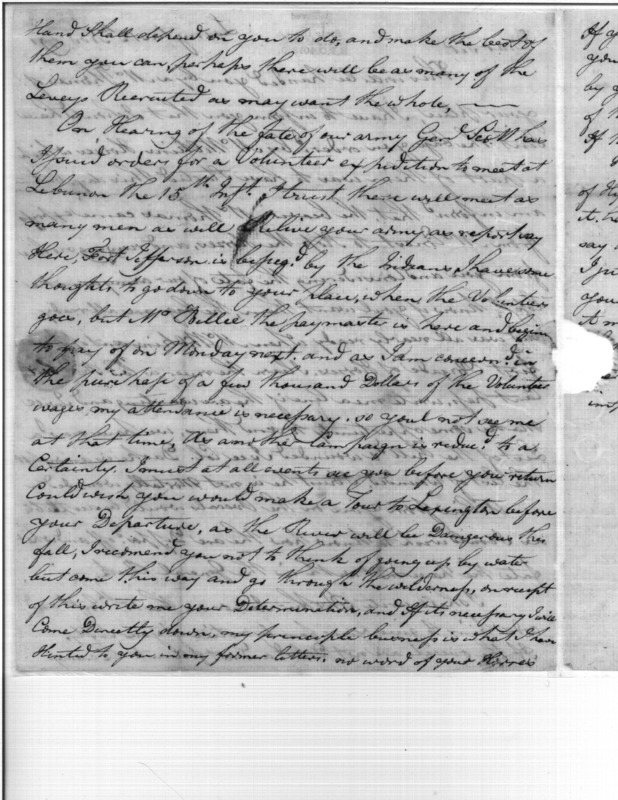 Hand Shall depend on you to do, and make the best of
them you can, perhaps there will be as many of the
Leveys Recruited as may want the whole,
On Hearing of the fate of our army Genl Scott has
Issued orders for a Volunteer expedition to meet at
Lebanon the 15th Inst. I trust there will meet as
many men as will Relive your army, as reports say
Here, Fort Jefferson is beseg'd by the Indians, I have some
thoughts to go down to your place, when the Volunteers
goes, but Mr Bellie the paymaster is here and begins
to pay of on Monday next. and as I am concern'd in
the purchase of a few thousand Dollars of the Voluntees
wages, my attendance is necessary. so youl not see me
at that time, As another Campaign is reduc'd to a
Certainty. I must at all events see you before you return
Could wish you would make a Tour to Lexington before
your Departure, as the River will be Dangerous this
fall, I recomend you not to think of going up by water
but come this way and go through the wilderness, on receipt
of this write me your Determination, and If its necessary I will
Come Directly down, my principle business is what I have
Hinted to you in my former letters. no word of your Horses